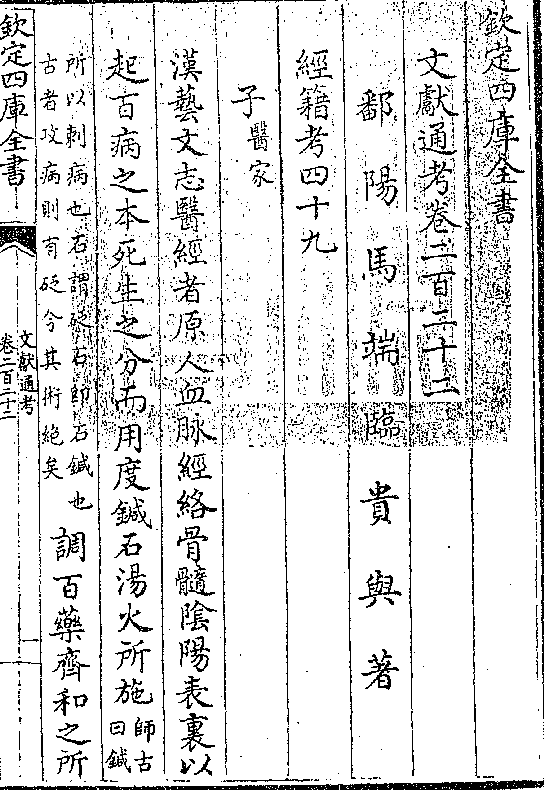 欽定四庫全書
文獻通考卷二百二十二
鄱陽馬端臨貴與著
經籍考四十九
子醫家
漢藝文志醫經者原人血脉經絡骨髓陰陽表裏以
起百病之本死生之分而用度鍼石湯火所施師古
曰鍼
所以刺病也石謂砭石即石鍼也
古者攻病則有砭今其術絶矣
調百藥齊和之所
欽定四庫全書
文獻通考
卷二百二十二